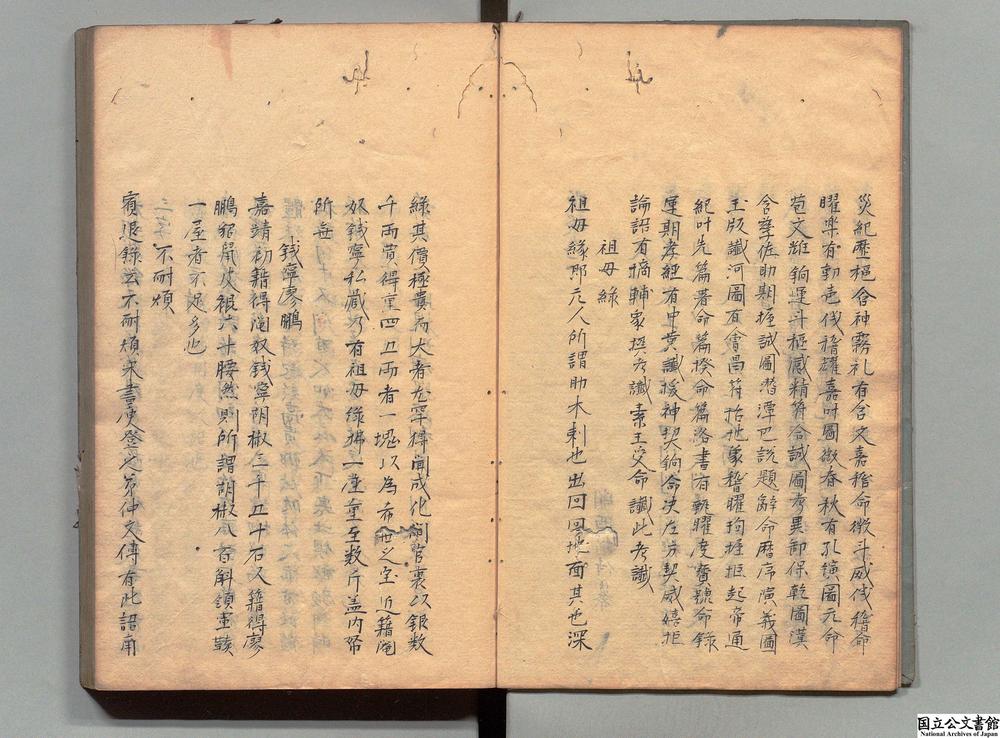 災紀歷樞含神霧礼有含文嘉稽命徵斗威伐稽命
曜樂有動声伐稽耀嘉叶圖徵春秋有孔演圖元命
苞文耀鉤運斗樞感精符合誠圖考異郵保乾圖漢
含孳佐助期握誠圖潛潭巴說題辭命曆序演義圖
玉版讖河圖有會昌符括地象稽曜拘握拒起帝通
紀叶光篇著命篇揆命篇洛書有甄曜度寶號命錄
運期孝經有中黄讖援神契鉤命决左方契威嬉拒
論語有摘輔象撰考讖素王受命讖此考讖
祖母綠
祖母綠即元人所謂助木剌也出回回地面其色深
綠其價極貴而大者尤罕得聞成化間官裏以銀數
千両買得重四五両者一塊以為希世之宝近籍閹
奴錢寧私藏乃有祖母綠狒一座重至数斤盖内帑
所無
錢寧廖鵬
嘉靖初籍得閹奴錢寧胡椒三千五十石又籍得廖
鵬貂鼠皮襖六十腰然則所謂胡椒八百斛領軍鞋
一屋者不足多也
不耐煩
宿退錄云不耐煩宋書庾登之弟仲文傳有此語甪
国立公文書館
National Archives of Japan